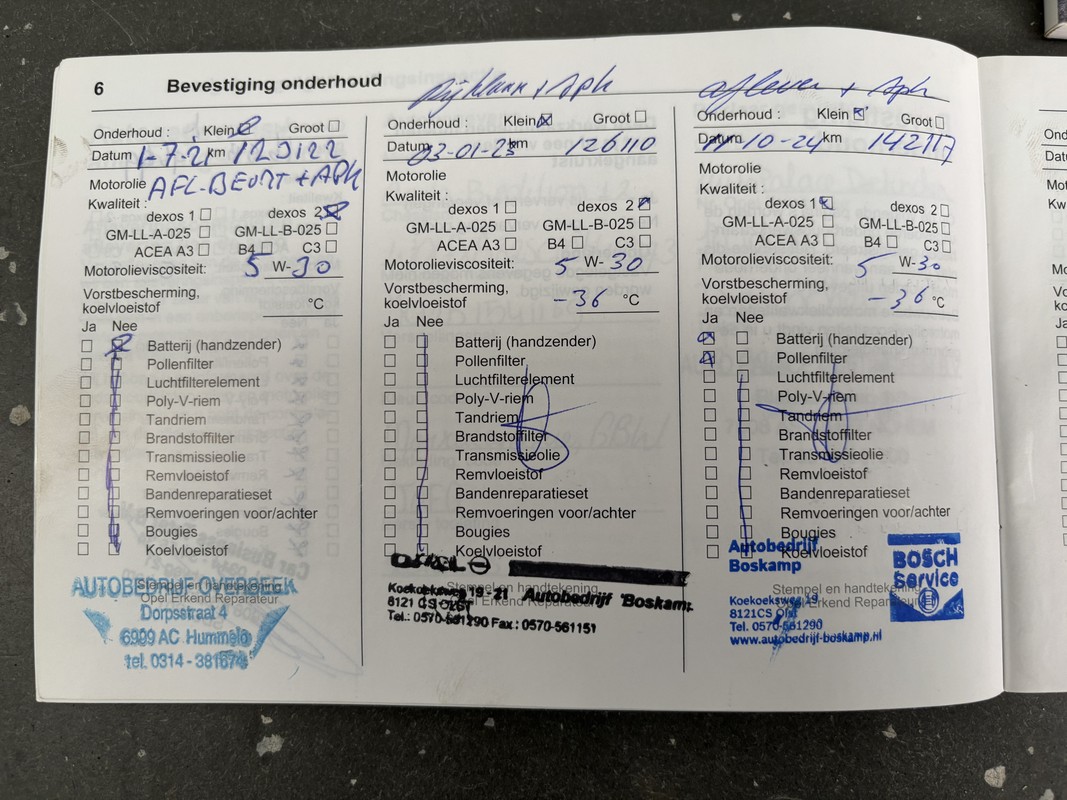 6 Bevestiging onderhoud
Onderhoud : Klein Groot
Datum 1-7-21 km 123122
Motorolie AFL-BEURT + APK
Kwaliteit :
dexos 1 dexos 2
GM-LL-A-025 GM-LL-B-025
ACEA A3 B4 C3
Motorolieviscositeit: 5 W-30
Vorstbescherming,
koelvloeistof °C
Ja Nee
Batterij (handzender)
Pollenfilter
Luchtfilterelement
Poly-V-riem
Tandriem
Brandstoffilter
Transmissieolie
Remvloeistof
Bandenreparatieset
Remvoeringen voor/achter
Bougies
Koelvloeistof
Stempel en handtekening
Opel Erkend Reparateur
AUTOBEDRIJF OVERBEEK
Dorpsstraat 4
6999 AC Hummelo
tel. 0314 - 381674
Rijklaar + Apk
Onderhoud : Klein Groot
Datum 03-01-23 km 126110
Motorolie
Kwaliteit :
dexos 1 dexos 2
GM-LL-A-025 GM-LL-B-025
ACEA A3 B4 C3
Motorolieviscositeit: 5 W-30
Vorstbescherming,
koelvloeistof -36 °C
Ja Nee
Batterij (handzender)
Pollenfilter
Luchtfilterelement
Poly-V-riem
Tandriem
Brandstoffilter
Transmissieolie
Remvloeistof
Bandenreparatieset
Remvoeringen voor/achter
Bougies
Koelvloeistof
Stempel en handtekening
Opel Erkend Reparateur
OPEL
Autobedrijf 'Boskamp
Koekoeksweg 19 - 21
8121 CS OLST
Tel.: 0570-561290 Fax : 0570-561151
aflever + Apk
Onderhoud : Klein Groot
Datum 11-10-24 km 142117
Motorolie
Kwaliteit :
dexos 1 dexos 2
GM-LL-A-025 GM-LL-B-025
ACEA A3 B4 C3
Motorolieviscositeit: 5 W-30
Vorstbescherming,
koelvloeistof -36 °C
Ja Nee
Batterij (handzender)
Pollenfilter
Luchtfilterelement
Poly-V-riem
Tandriem
Brandstoffilter
Transmissieolie
Remvloeistof
Bandenreparatieset
Remvoeringen voor/achter
Bougies
Koelvloeistof
Stempel en handtekening
Opel Erkend Reparateur
Autobedrijf
Boskamp
Koekoeksweg 19
8121CS Olst
Tel. 0570-561290
www.autobedrijf-boskamp.nl
BOSCH
Service